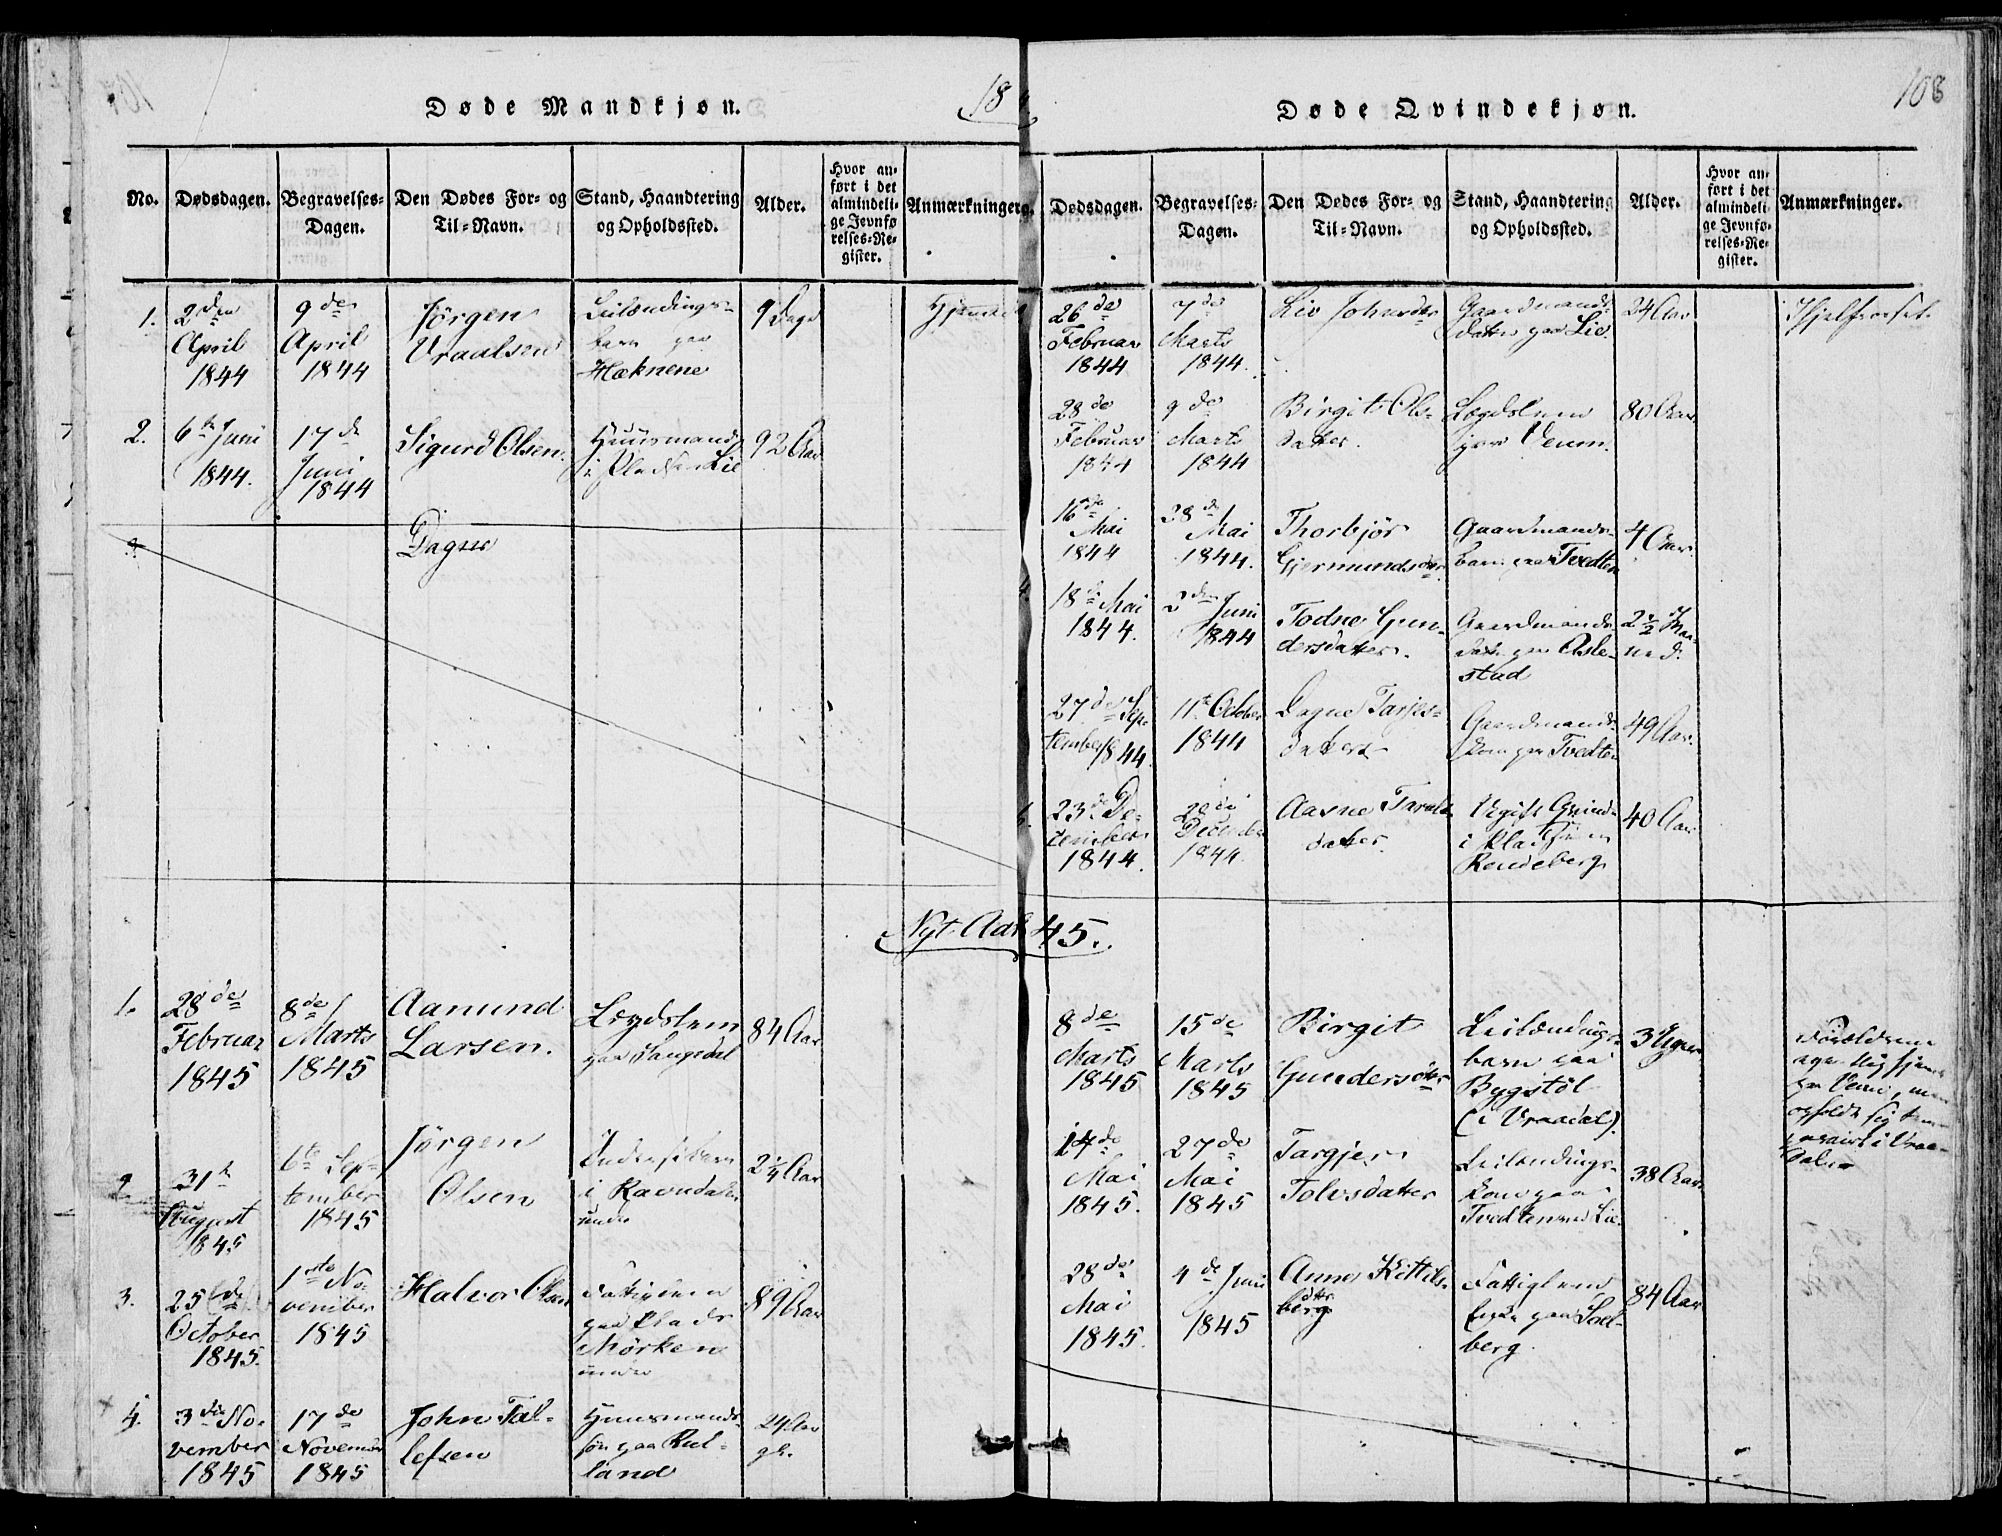 Døde Mandkjøn.
18
No.
Dødsdagen.
Begravelses-
Dagen.
Den Dødes For- og
Til-Navn.
Stand, Haandtering
og Opholdssted.
Alder.
Hvor an-
ført i det
almindeli-
ge Jevnfø-
relses-Re-
gister.
Anmærkninger.
1.
2den
April
1844
9de
April
1844
Jørgen
Vraalsen
Leilændings-
barn paa
Haknene
9 Dage
2.
6te Juni
1844.
17de
Juni
1844
Sigurd Olsen.
Huusmand
i Pladsen Lie
92 Aar
3.
Dagne
Nyt Aar 45.
1.
28de
Februar
1845
8de
Marts
1845
Aamund
Larsen.
Lægdslem
paa
84 Aar
2
31te
August
1845
6te Sep-
tember
1845
Jørgen
Olsen
i Ravndalen
under
2¼ Aar
3.
25de
October
1845.
1ste No-
vember
1845
Halvor Olsen
Fattiglem
paa Plads
Mörken
under
89 Aar
4.
3die No-
vember
1845
17de
November
1845
John Tal-
lefsen
Huusmands-
søn paa Rul-
land
24 Aar
gl.
Døde Qvindekjøn.
108
Dødsdagen.
Begravelses-
Dagen.
Den Dødes For- og
Til-Navn.
Stand, Haandtering
og Opholdssted.
Alder.
Hvor an-
ført i det
almindeli-
ge Jevnfø-
relses-Re-
gister.
Anmærkninger.
26de
Februar
1844
7de
Marts
1844.
Liv Johnsdatter
Gaardmands-
datter paa Lie.
34 Aar
Ihjelfrosset.
28de
Februar
1844
9de
Marts
1844
Birgit Ols-
datter.
Lægdslem
paa Veum.
80 Aar.
16de
Mai
1844
28de
Mai
1844.
Thorbjör
Gjermundsdtr.
Gaardmands-
barn paa Tvedten
4 Aar.
18de Mai
1844.
2den Juni
1844
Todne Gun-
dersdatter.
Gaardmands-
datter paa Asle-
stad
2½ Maa-
ned.
27de Sep-
tember 1844.
11te October
1844
Dagne Tarjes-
datter
Gaardmands-
kone paa Tvedten
49 Aar.
23de De-
cember
1844.
28de
December
1844.
Aasne Tarals-
datter.
Ugift Qvinde
i Pladsen
Rendeberg
40 Aar
8de
Marts
1845
15de
Marts
1845
Birgit
Gundersdtr
Leilændings-
barn paa
Bygstöl
(i Vraadal).
3 Uger
Forældrene
paa Veum, men
opholdt sig tem-
porairt i Vraa-
dalen
14de
Mai
1845.
27de
Mai
1845
Targjer
Tolvsdatter
Leilændings-
kone paa
Tvedten ved Lie.
38 Aar.
28de
Mai
1845.
4de Juni
1845
Anne Kittils-
dtr
berg
Fattiglem
Enke paa Sol-
berg
84 Aar